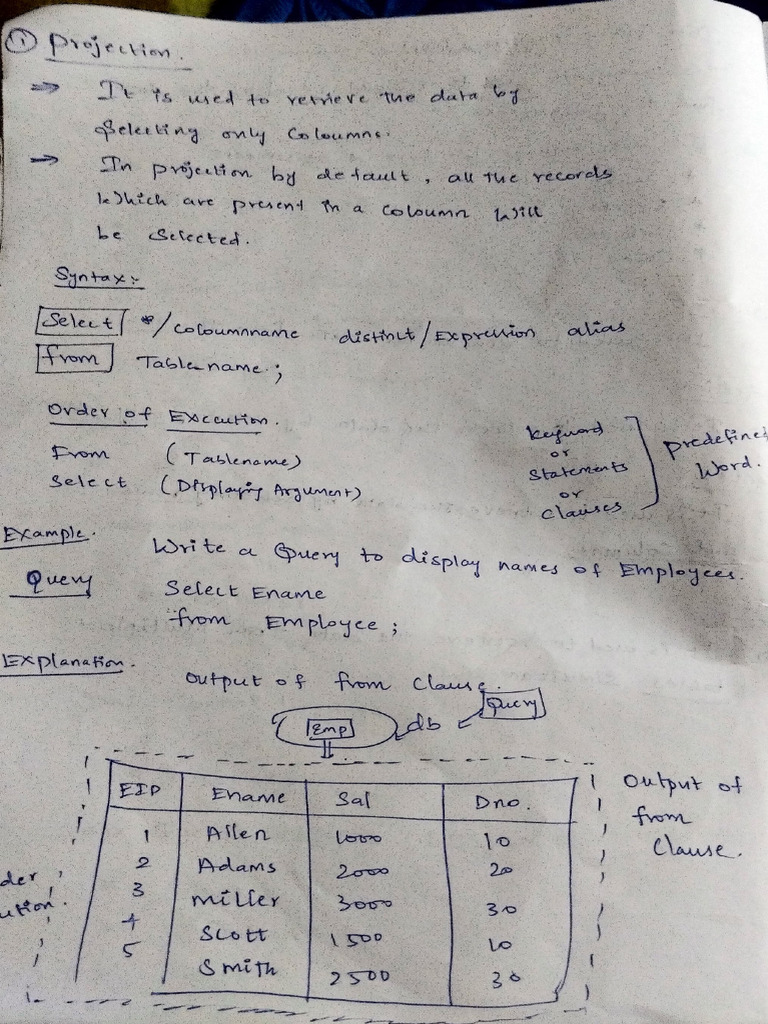 ① Projection.
⇒ It is used to retrieve the data by
Selecting only Coloumns.
⇒ In projection by default, all the records
Which are present in a coloumn Will
be Selected.
Syntax:-
Select */coloumnname distinct/Expression alias
from Tablename;
Order of Execution.
From (Tablename)
Select (Displaying Argument)
Keyword
or
Statements
or
Clauses
predefined
Word.
Example. Write a Query to display names of Employees.
Query Select Ename
from Employee;
Explanation. Output of from Clause.
Emp db Query
EID Ename Sal Dno.
1 Allen 1000 10
2 Adams 2000 20
3 Miller 3000 30
4 Scott 1500 10
5 Smith 2500 30
Output of
from
Clause.